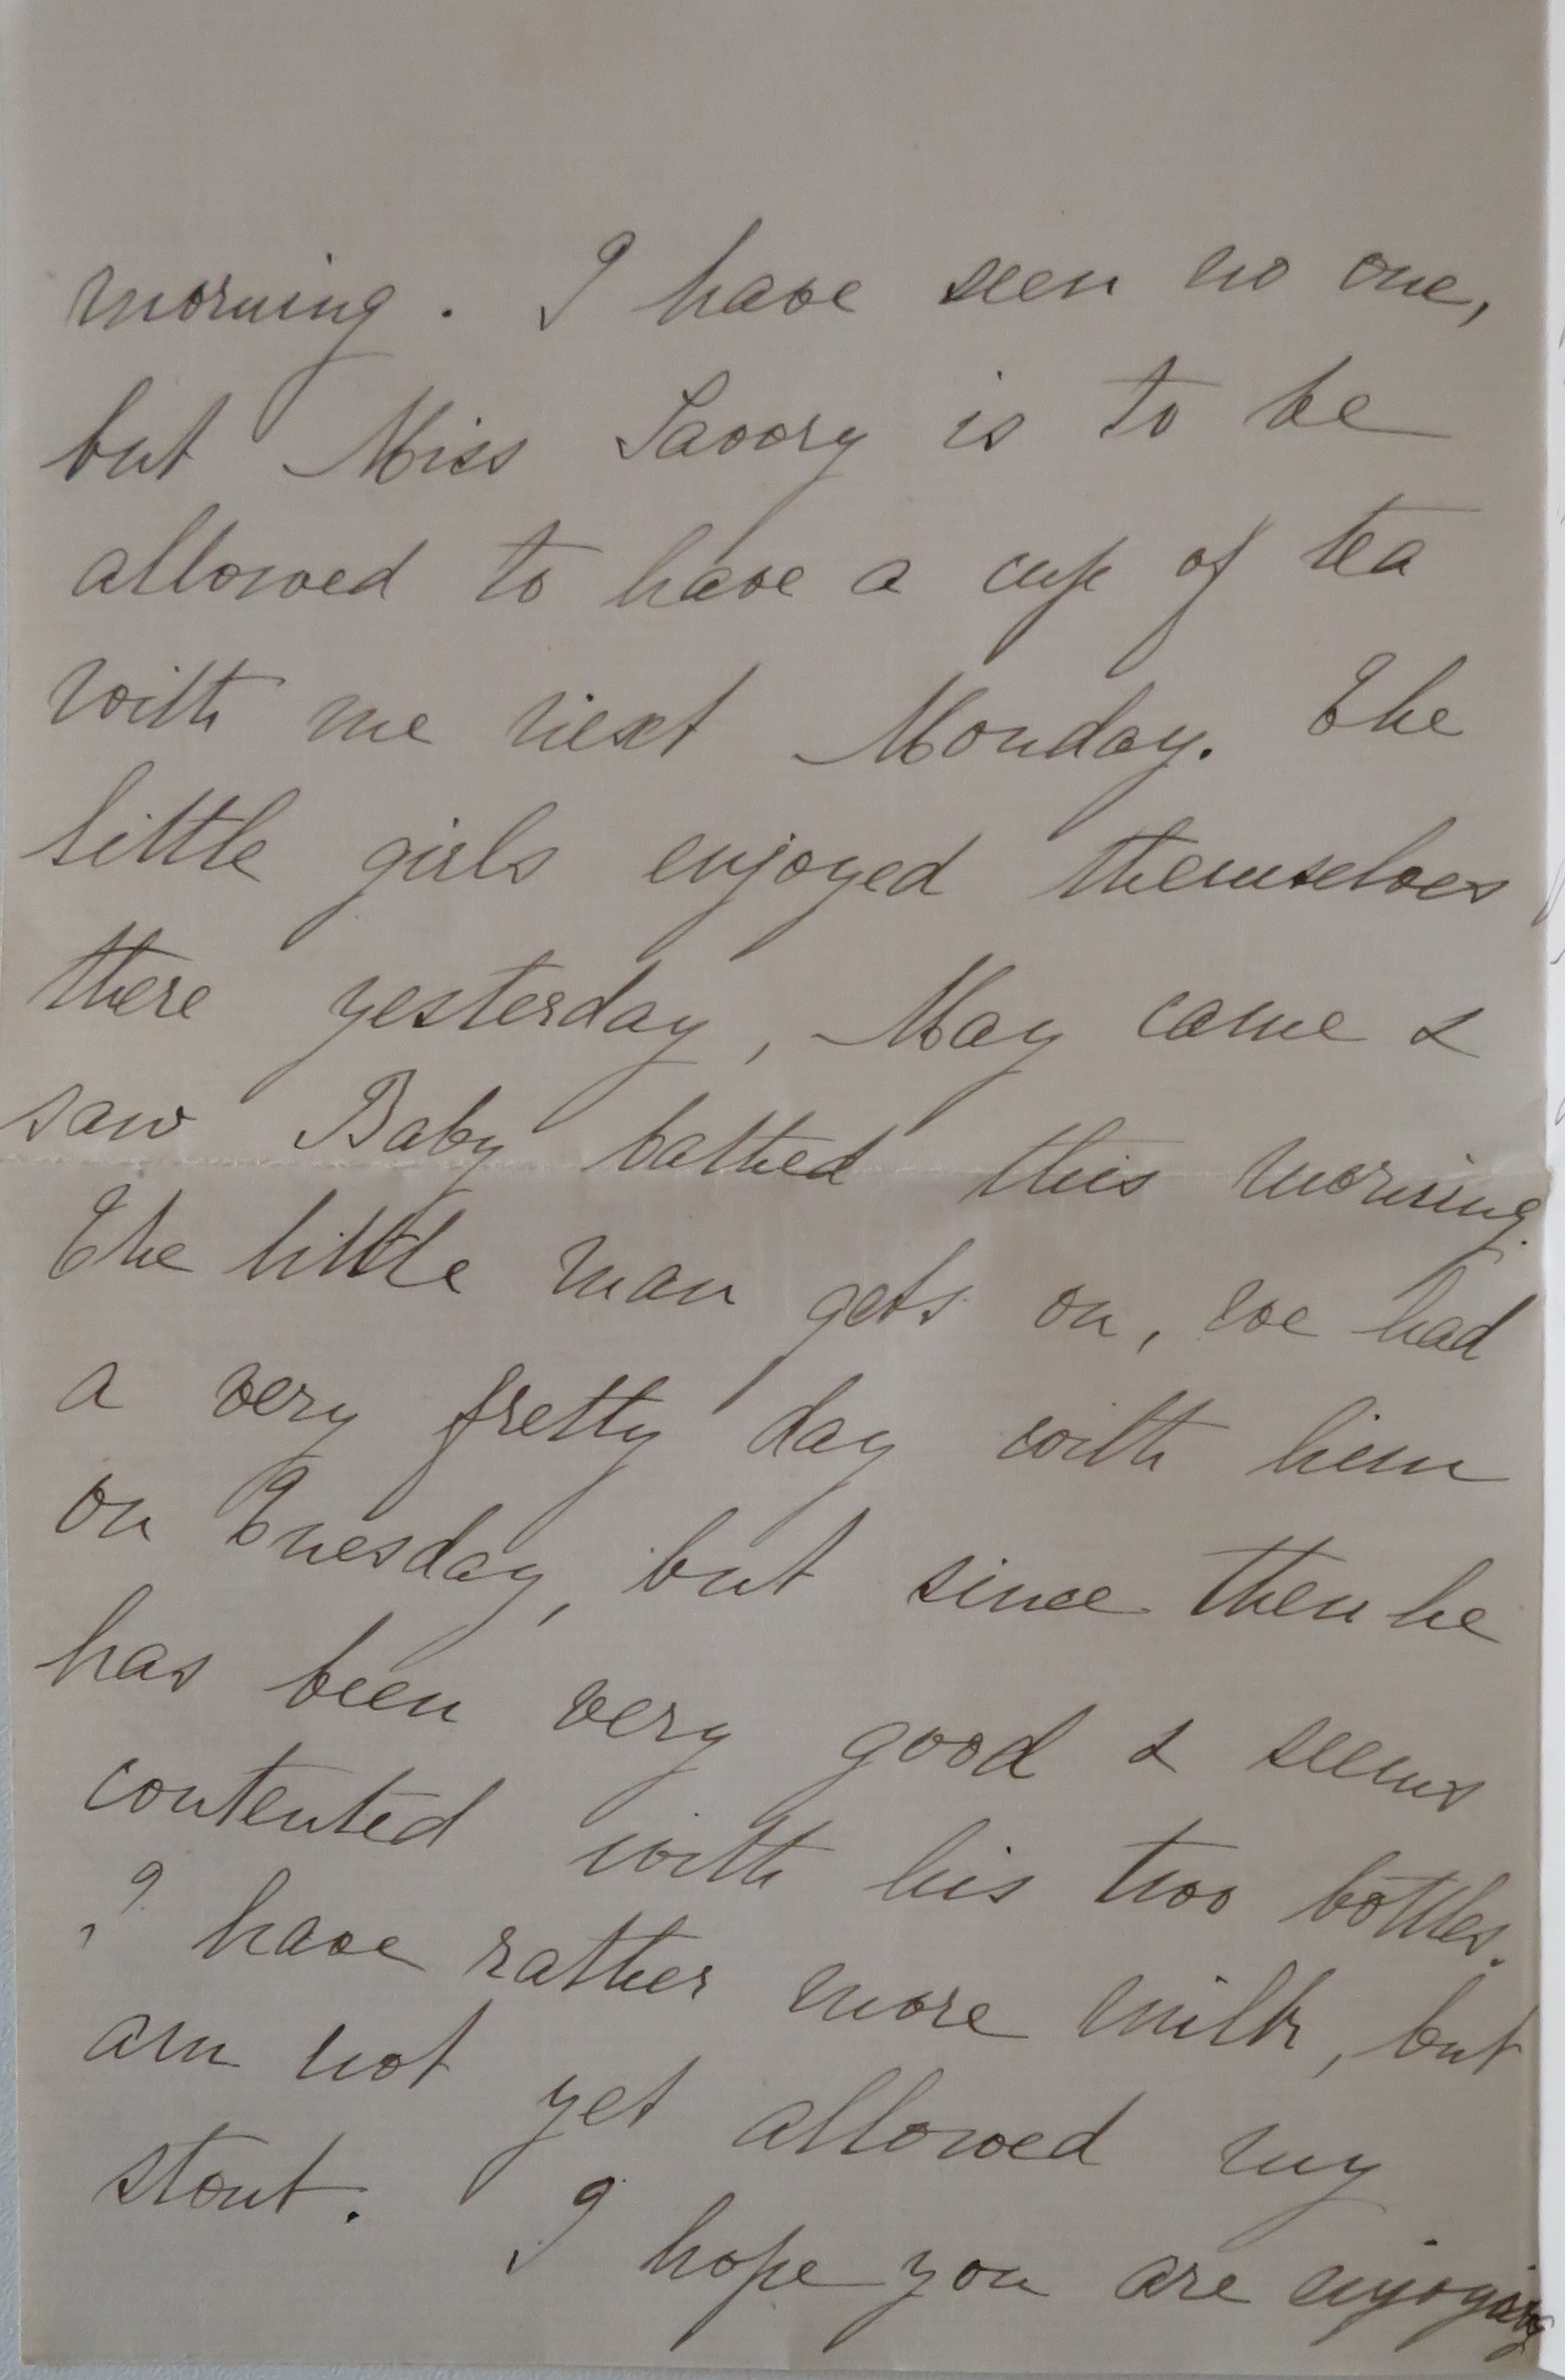 morning. I have seen no one,
but Miss Savory is to be
allowed to have a cup of tea
with me next Monday. The
little girls enjoyed themselves
there yesterday, May came &
saw Baby bathed this morning.
The little man gets on, we had
a very fretty day with him
on Tuesday, but since then he
has been very good & seems
contented with his two bottles.
I have rather more milk, but
am not yet allowed my
stout. I hope you are enjoying